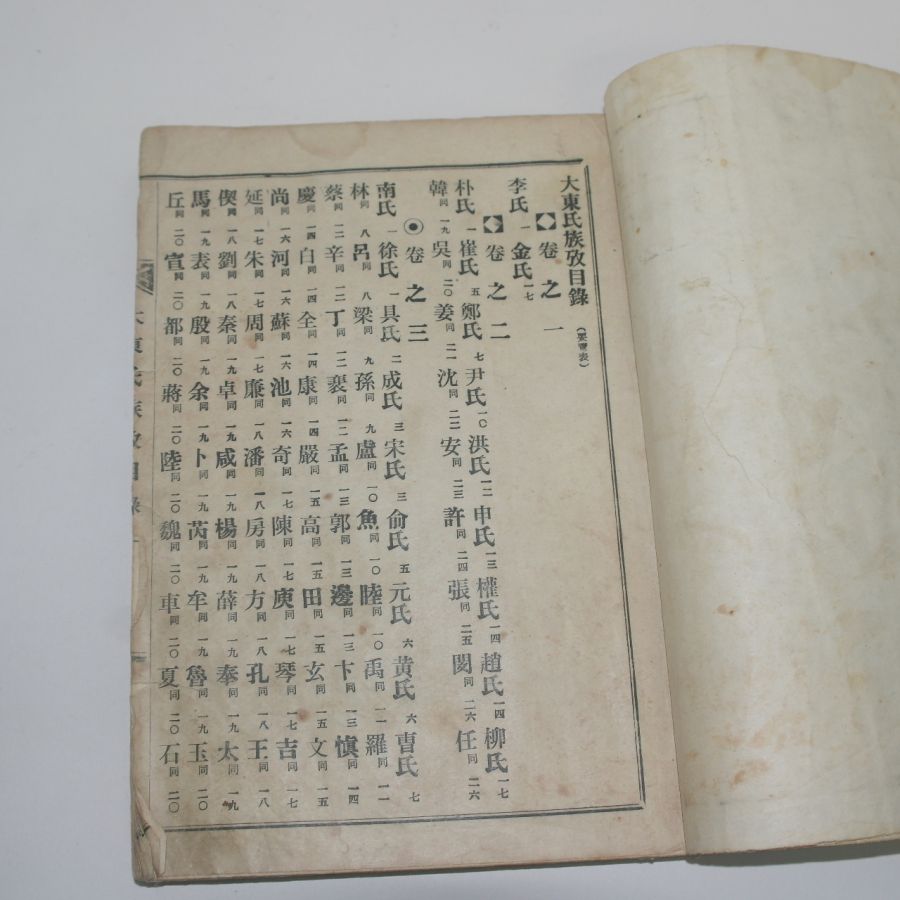 大東氏族攷目錄
卷之一
李氏 一 金氏 一七
卷之二
朴氏 一 崔氏 五 鄭氏 七 尹氏 一〇 洪氏 一二 申氏 一三 權氏 一四 趙氏 一四 柳氏 一七
韓同 一九 吳同 二〇 姜同 二一 沈同 二二 安同 二三 許同 二四 張同 二五 閔同 二六 任同 二六
卷之三
南氏 一 徐氏 一 具氏 二 成氏 三 宋氏 三 俞氏 五 元氏 六 黃氏 六 曹氏 七
林同 八 呂同 八 梁同 九 孫同 九 盧同 一〇 魚同 一〇 睦同 一〇 禹同 一一 羅同 一一
蔡同 一二 辛同 一二 丁同 一二 裵同 一二 孟同 一三 郭同 一三 邊同 一三 卞同 一三 愼同 一四
慶同 一四 白同 一四 全同 一四 康同 一四 嚴同 一五 高同 一五 田同 一五 玄同 一五 文同 一五
尚同 一六 河同 一六 蘇同 一六 池同 一六 奇同 一七 陳同 一七 庾同 一七 琴同 一七 吉同 一七
延同 一七 朱同 一七 周同 一七 廉同 一八 潘同 一八 房同 一八 方同 一八 孔同 一八 王同 一八
偰同 一八 劉同 一八 秦同 一九 卓同 一九 咸同 一九 楊同 一九 薛同 一九 奉同 一九 太同 一九
馬同 一九 表同 一九 殷同 一九 余同 一九 卜同 一九 芮同 一九 牟同 一九 魯同 一九 玉同 二〇
丘同 二〇 宣同 二〇 都同 二〇 蔣同 二〇 陸同 二〇 魏同 二〇 車同 二〇 夏同 二〇 石同 二〇
大東氏族攷目錄